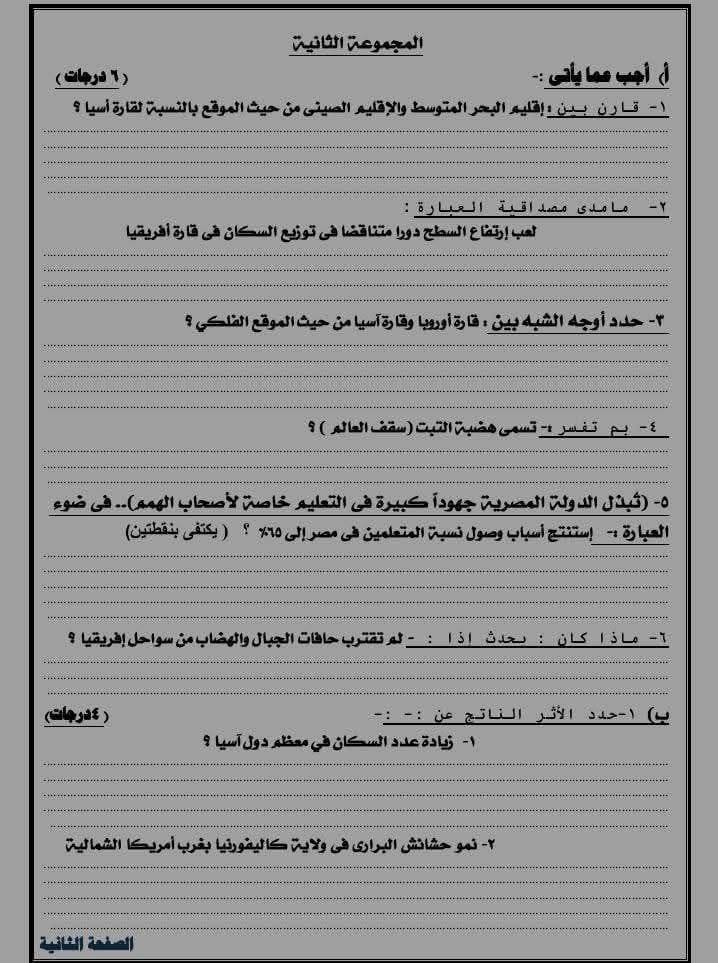 المجموعة الثانية
أ) أجب عما يأتى :- ( ٦ درجات )
١- قارن بين : إقليم البحر المتوسط والإقليم الصينى من حيث الموقع بالنسبة لقارة أسيا ؟
٢- مامدى مصداقية العبارة :
لعب إرتفاع السطح دورا متناقضا فى توزيع السكان فى قارة أفريقيا
٣- حدد أوجه الشبه بين : قارة أوروبا وقارة آسيا من حيث الموقع الفلكي ؟
٤- بم تفسر :- تسمى هضبة التبت (سقف العالم ) ؟
٥- (تُبذل الدولة المصرية جهوداً كبيرة فى التعليم خاصة لأصحاب الهمم).. فى ضوء
العبارة :- إستنتج أسباب وصول نسبة المتعلمين فى مصر إلى ٦٥٪ ؟ ( يكتفى بنقطتين)
٦- ماذا كان : يحدث إذا : - لم تقترب حافات الجبال والهضاب من سواحل إفريقيا ؟
ب) ١-حدد الأثر الناتج عن :- :- (٤درجات)
١- زيادة عدد السكان في معظم دول آسيا ؟
٢- نمو حشائش البرارى فى ولاية كاليفورنيا بغرب أمريكا الشمالية
الصفحة الثانية